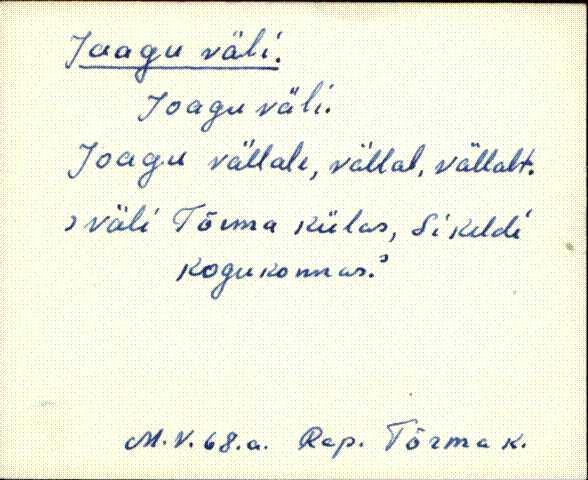 Jaagu väli.
Joagu väli.
Joagu vällale, vällal, vällalt.
› väli Tõrma külas, Sikeldi
kogukonnas.›
M.V. 68.a. Rap. Tõrma k.